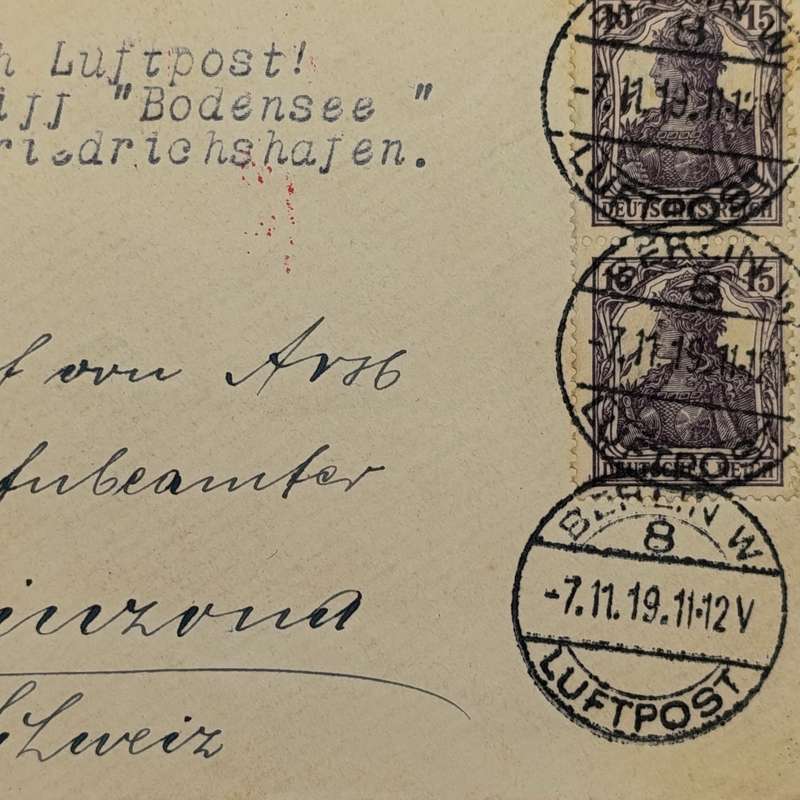 h Luftpost!
iff "Bodensee"
riedrichshafen.
15 15
BERLIN W
8
-7.11.19.11-12V
LUFTPOST
DEUTSCHES REICH
15 15
BERLIN W
8
-7.11.19.11-12V
LUFTPOST
DEUTSCHES REICH
f von Arx
nbeamter
inzona
Schweiz
BERLIN W
8
-7.11.19.11-12V
LUFTPOST